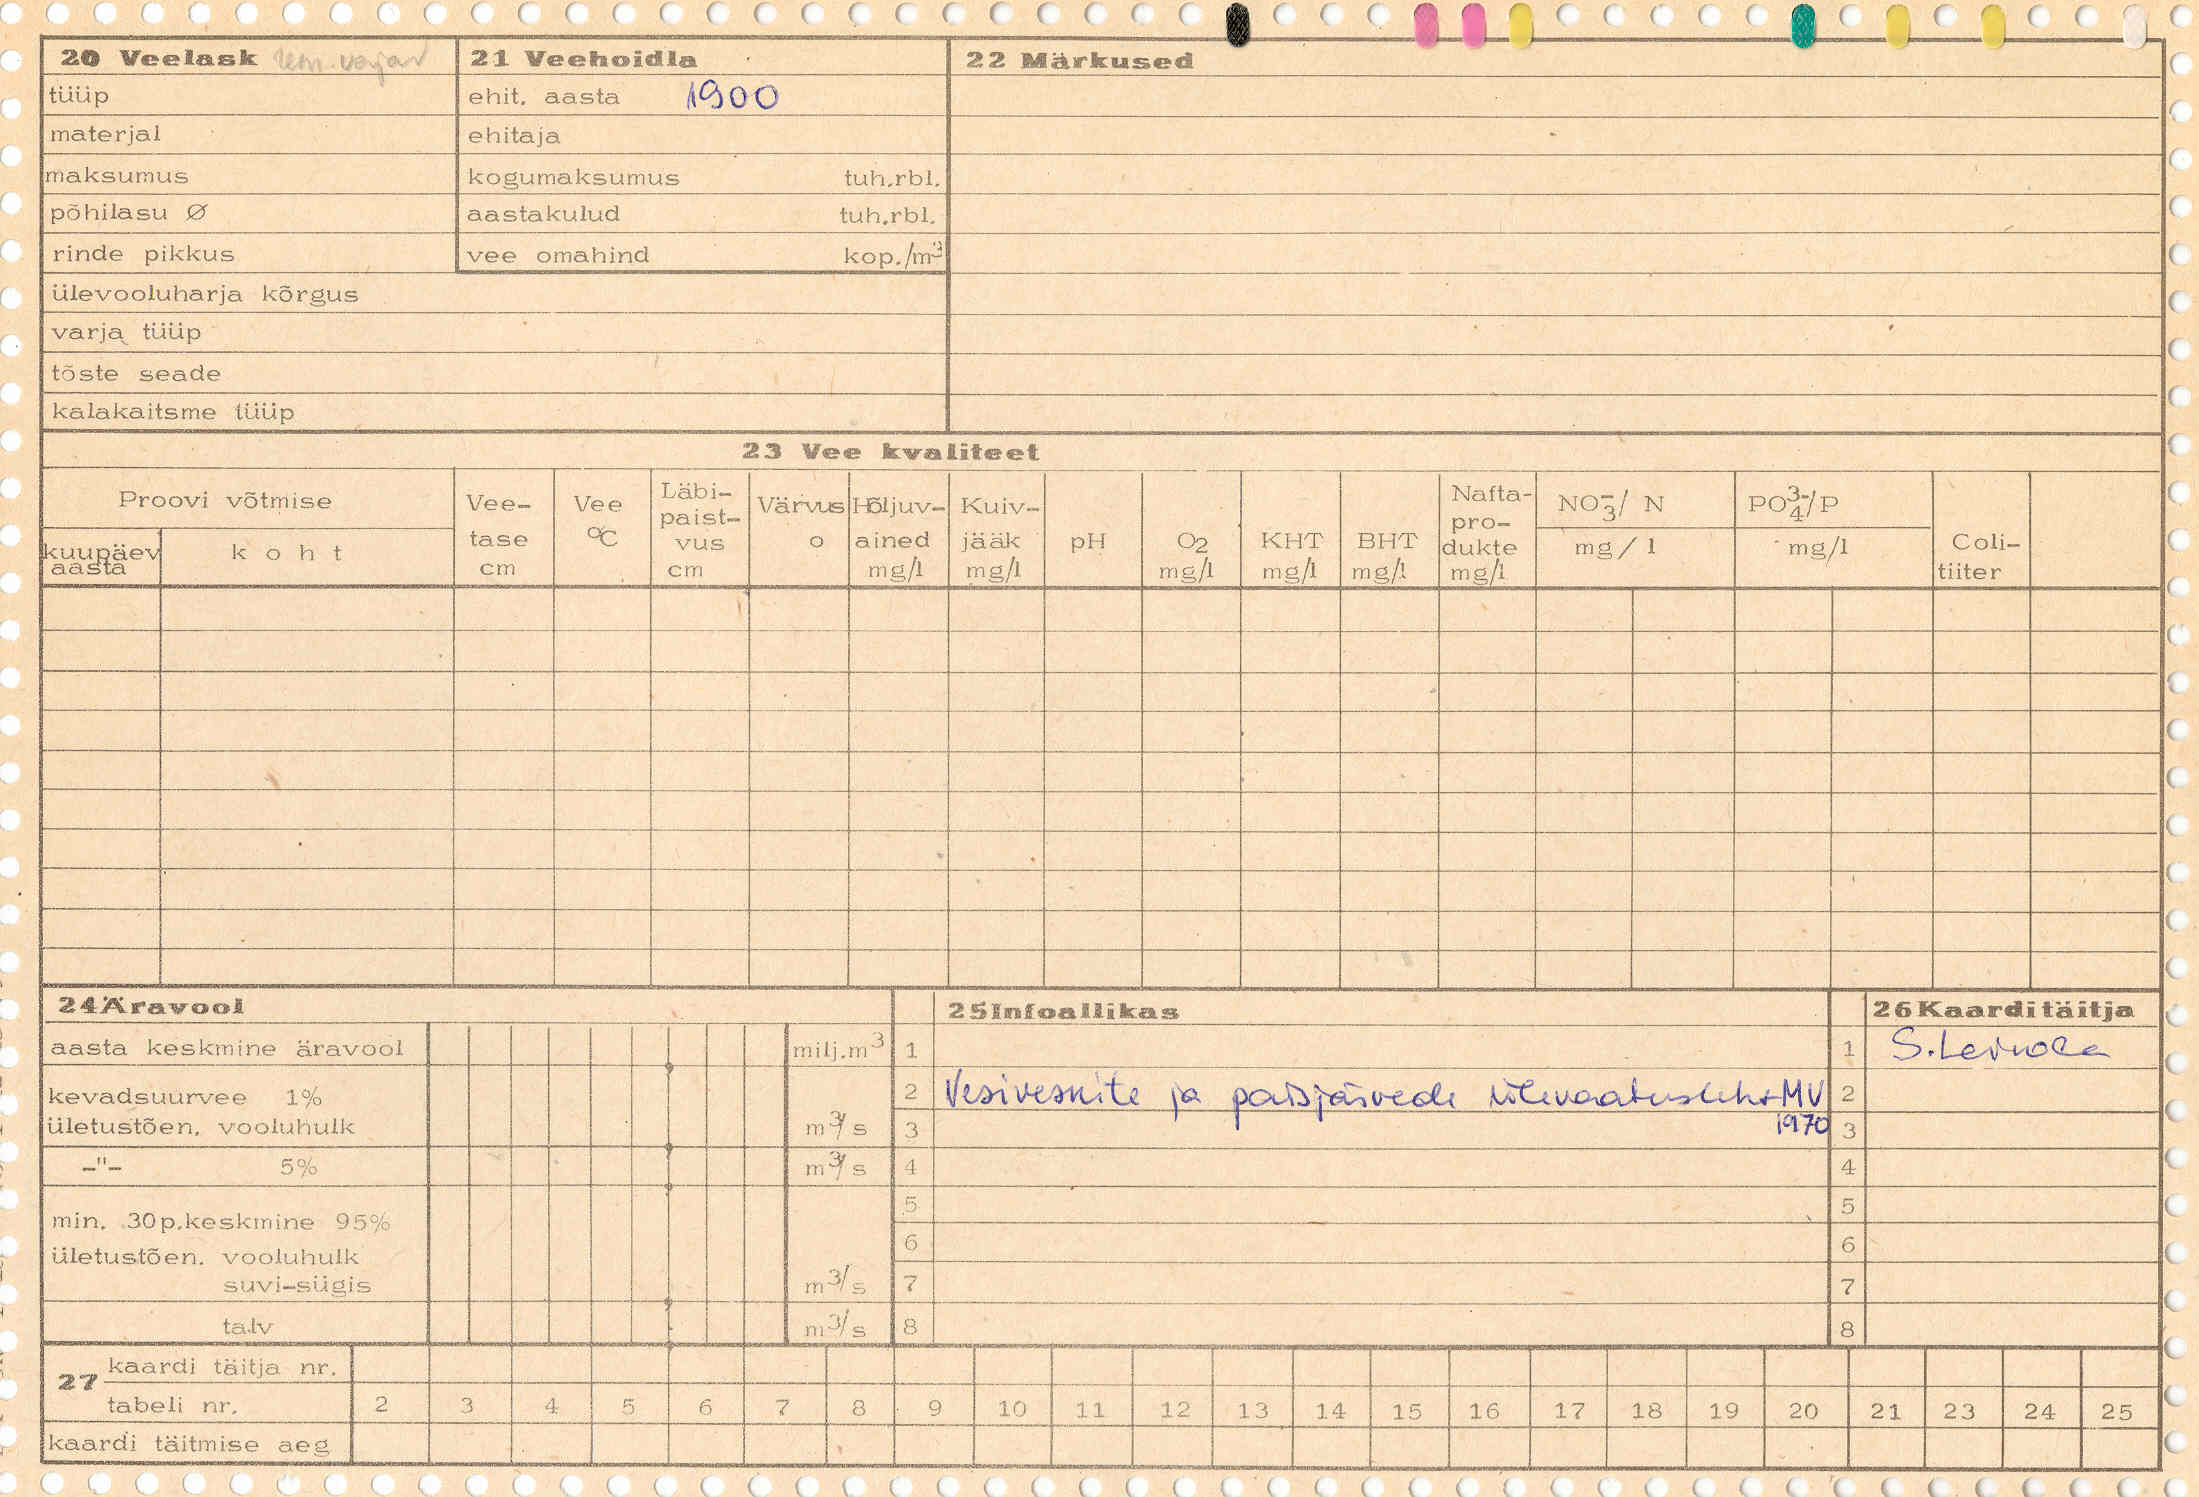 20 Veelask
tüüp
materjal
maksumus
põhilasu Ø
rinde pikkus
ülevooluharja kõrgus
varja tüüp
tõste seade
kalakaitsme tüüp
21 Veehoidla
ehit. aasta 1900
ehitaja
kogumaksumus tuh.rbl.
aastakulud tuh.rbl.
vee omahind kop./m³
22 Märkused
23 Vee kvaliteet
Proovi võtmise
kuupäev
aasta
koht
Vee-
tase
cm
Vee
°C
Läbi-
paist-
vus
cm
Värvus
o
Hõljuv-
ained
mg/l
Kuiv-
jääk
mg/l
pH
O2
mg/l
KHT
mg/l
BHT
mg/l
Nafta-
pro-
dukte
mg/l
NO₃⁻/ N
mg/l
PO₄³⁻/P
mg/l
Coli-
tiiter
24 Äravool
aasta keskmine äravool milj.m³
kevadsuurvee 1%
ületustõen. vooluhulk m³/s
-"- 5% m³/s
min. 30p.keskmine 95%
ületustõen. vooluhulk
suvi-sügis m³/s
talv m³/s
25 Infoallikas
1
2 Vesiveskite ja paisjärvede ülevaatusleht MV
3 1970
4
5
6
7
8
26 Kaarditäitja
1 S.
2
3
4
5
6
7
8
27
kaardi täitja nr.
tabeli nr. 2 3 4 5 6 7 8 9 10 11 12 13 14 15 16 17 18 19 20 21 23 24 25
kaardi täitmise aeg